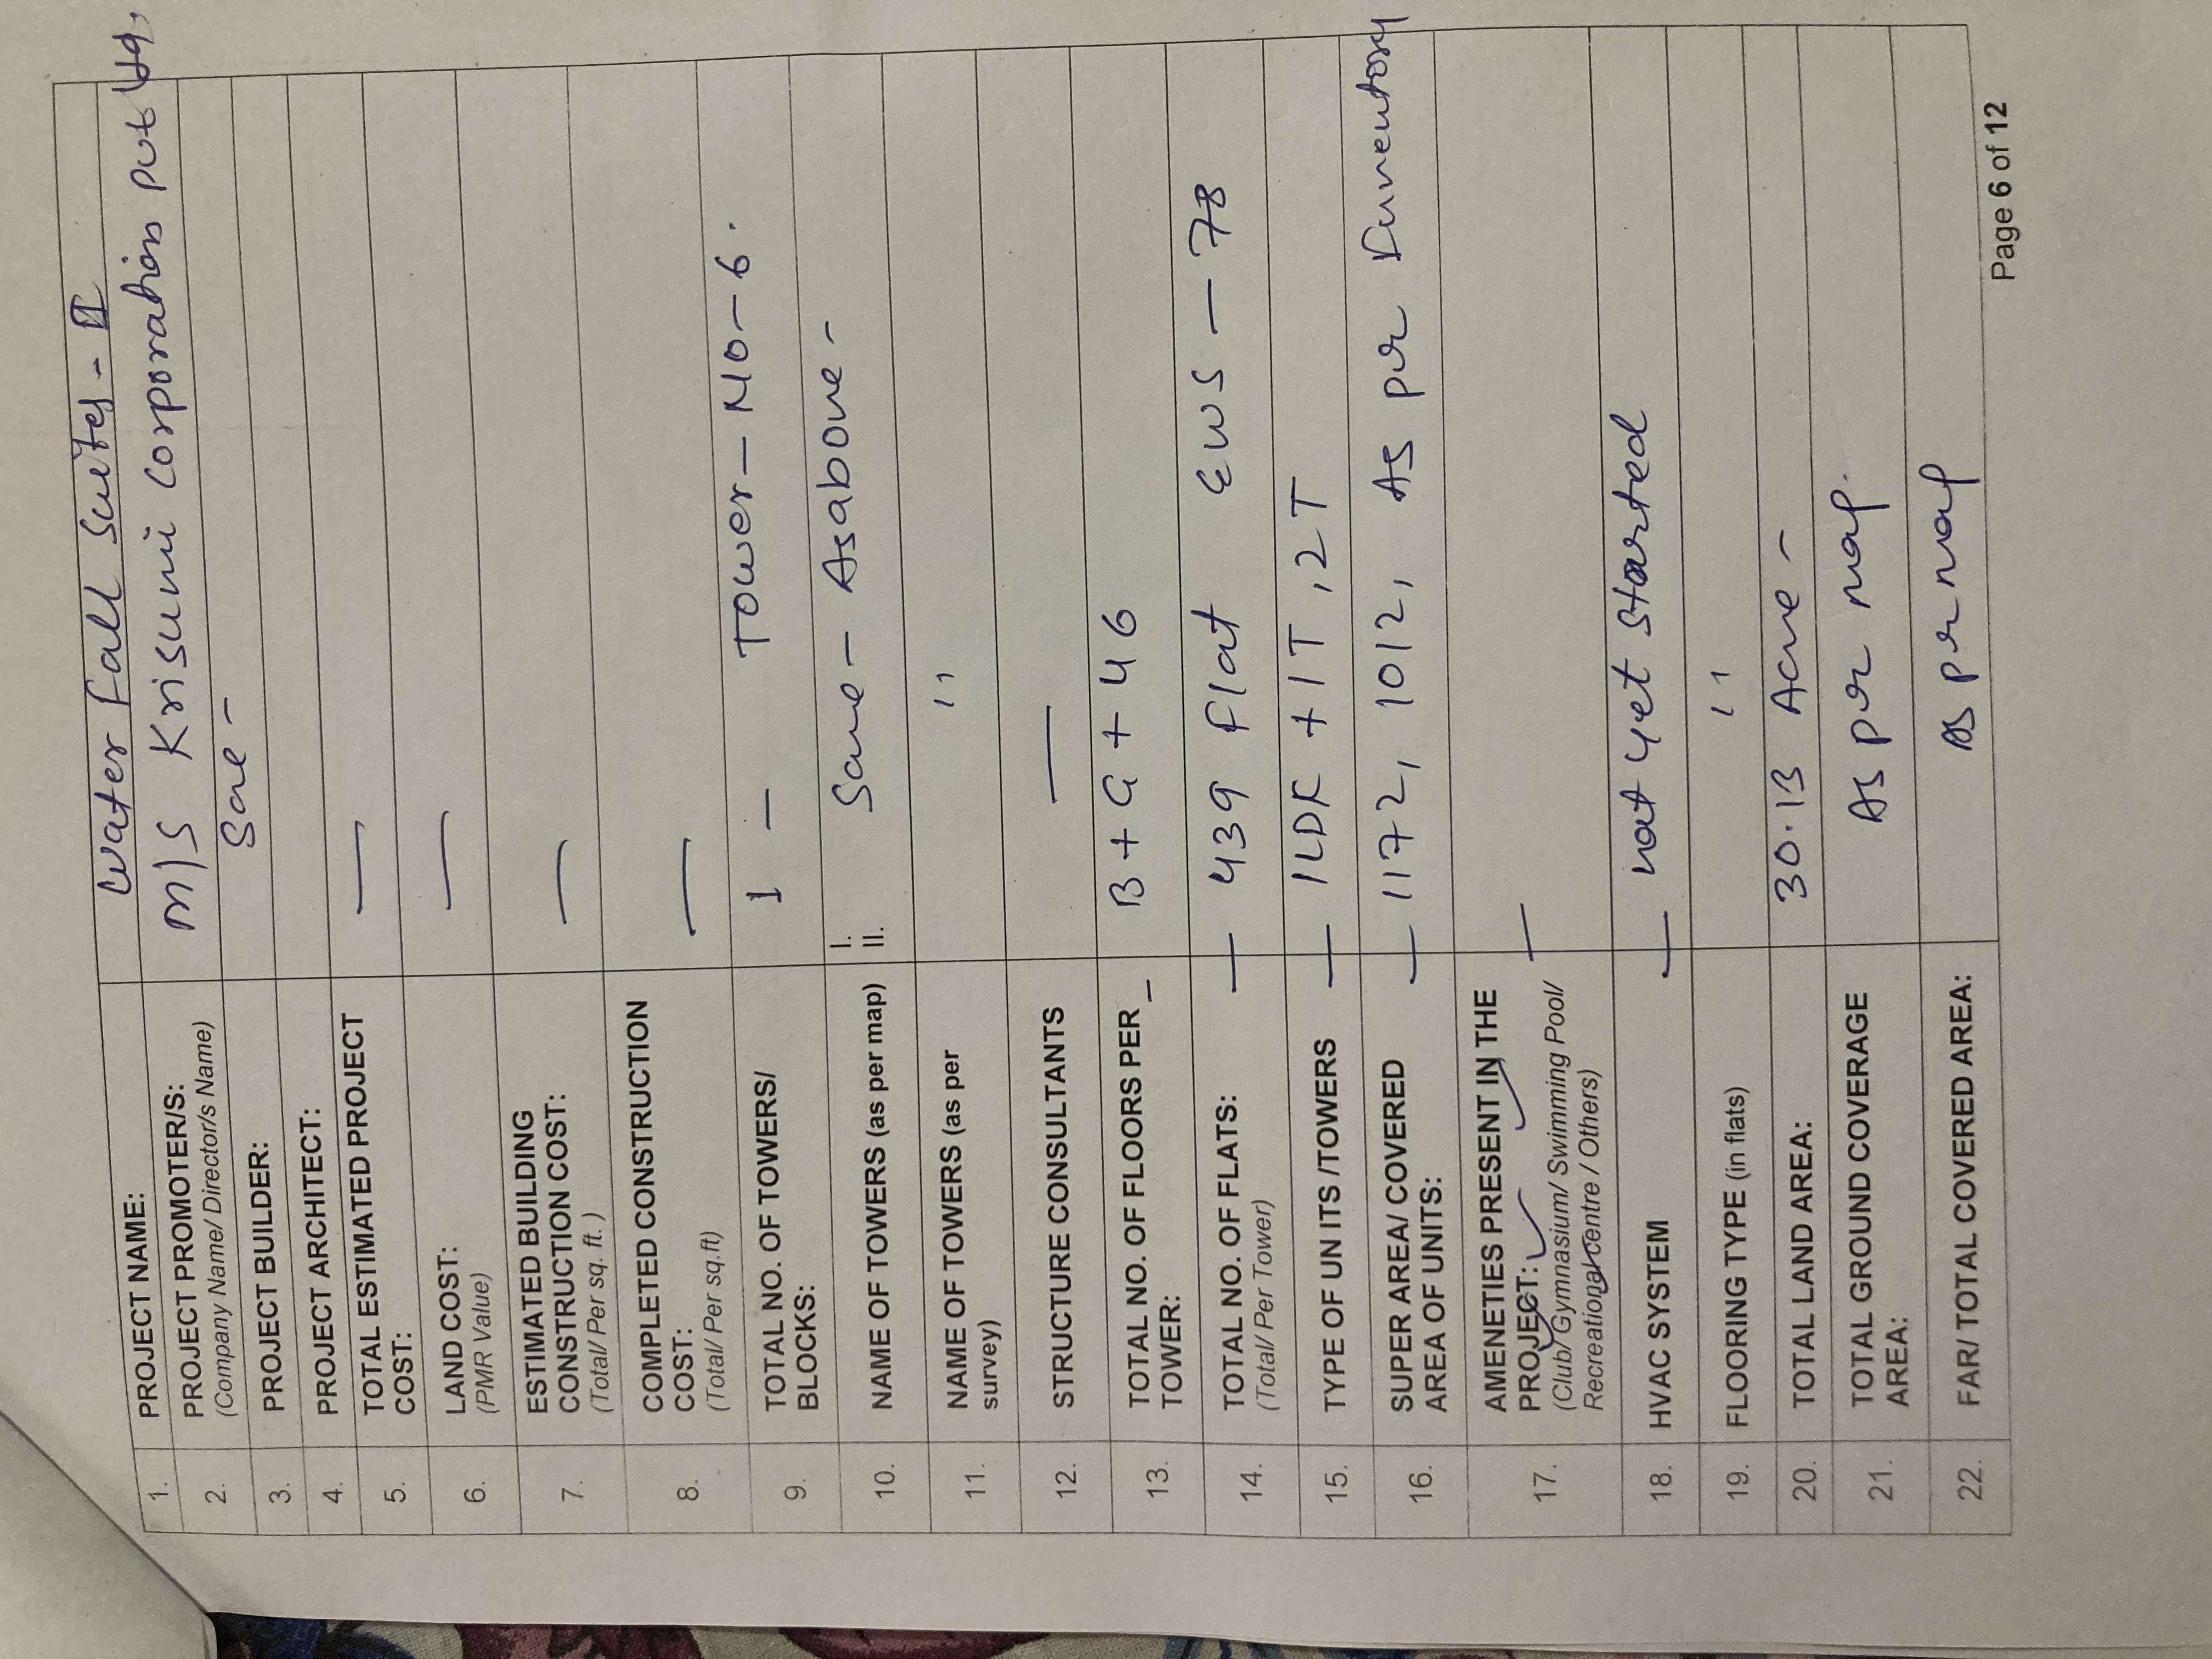 1. PROJECT NAME: Water fall Suites - II
2. PROJECT PROMOTER/S: M/S Krisumi Corporation Pvt Ltd,
(Company Name/ Director/s Name)
3. PROJECT BUILDER: Same -
4. PROJECT ARCHITECT:
5. TOTAL ESTIMATED PROJECT —
COST:
6. LAND COST: —
(PMR Value)
7. ESTIMATED BUILDING —
CONSTRUCTION COST:
(Total/ Per sq. ft.)
8. COMPLETED CONSTRUCTION —
COST:
(Total/ Per sq.ft)
9. TOTAL NO. OF TOWERS/ 1 - Tower - No - 6.
BLOCKS:
10. NAME OF TOWERS (as per map) I.
II. Same - As above -
11. NAME OF TOWERS (as per "
survey)
12. STRUCTURE CONSULTANTS —
13. TOTAL NO. OF FLOORS PER - B + G + 46
TOWER:
14. TOTAL NO. OF FLATS: — 439 Flat EWS - 78
(Total/ Per Tower)
15. TYPE OF UN ITS /TOWERS — 1LDK + 1T, 2T
16. SUPER AREA/ COVERED — 1172, 1012, As per Inventory
AREA OF UNITS:
17. AMENETIES PRESENT IN THE —
PROJECT:
(Club/ Gymnasium/ Swimming Pool/
Recreational centre / Others)
18. HVAC SYSTEM — not yet started
19. FLOORING TYPE (in flats) "
20. TOTAL LAND AREA: 30.13 Acre -
21. TOTAL GROUND COVERAGE As per map.
AREA:
22. FAR/ TOTAL COVERED AREA: As per map
Page 6 of 12